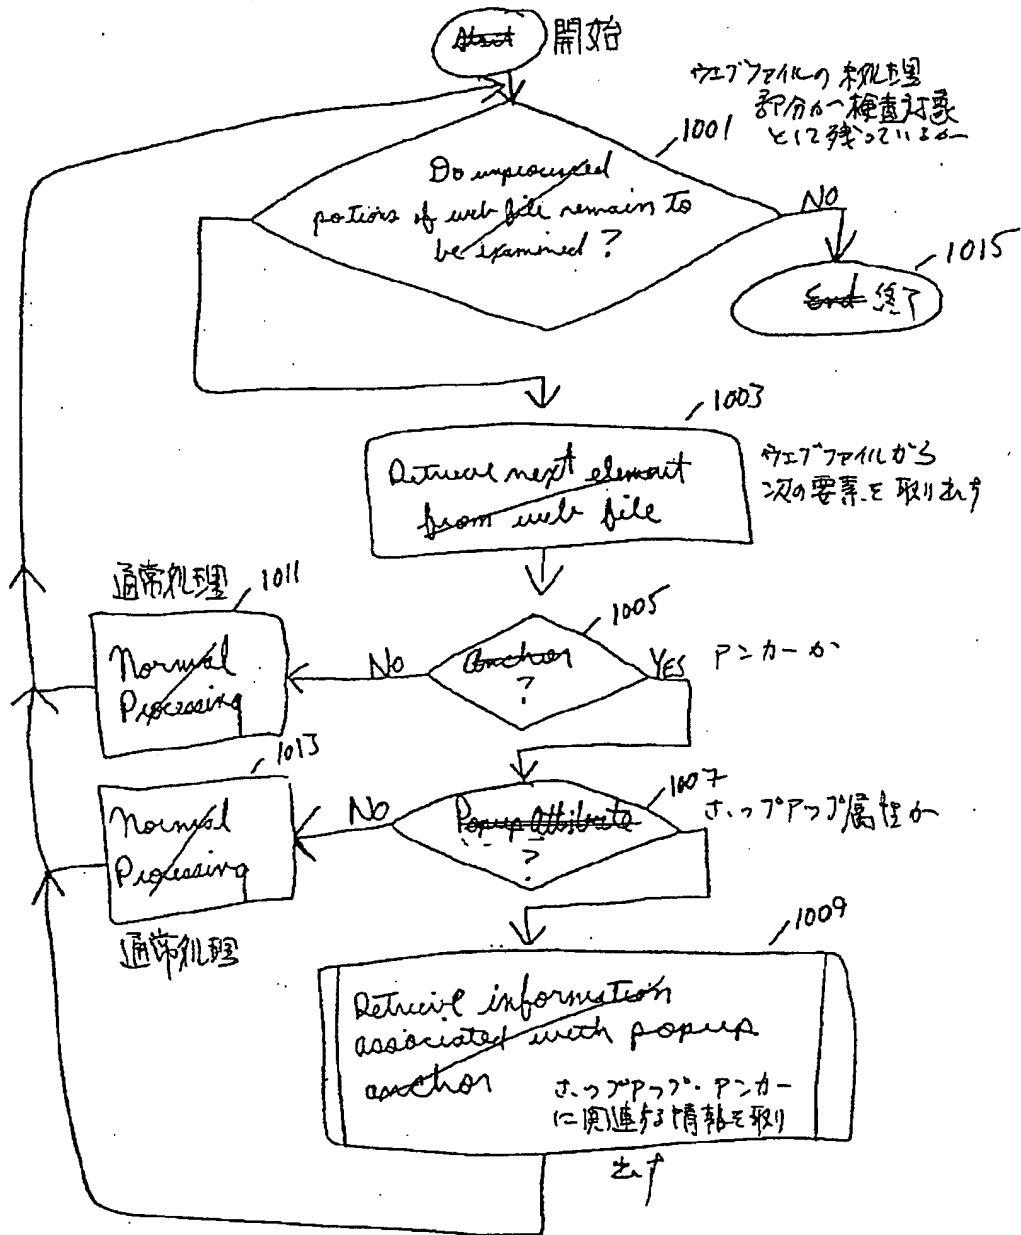 Start 開始
ウェブファイルの未処理
部分が検査対象
として残っているか
1001
Do unprocessed
potions of web file remain to
be examined?
NO
1015
End 終了
1003
Retrieve next element
from web file
ウェブファイルから
次の要素を取り出す
通常処理
1011
Normal
Processing
No
1005
Anchor
?
YES
アンカーか
1013
Normal
Processing
通常処理
No
1007
Popup Attribute
?
ポップアップ属性か
1009
Retrieve information
associated with popup
anchor
ポップアップ・アンカー
に関連する情報を取り
出す